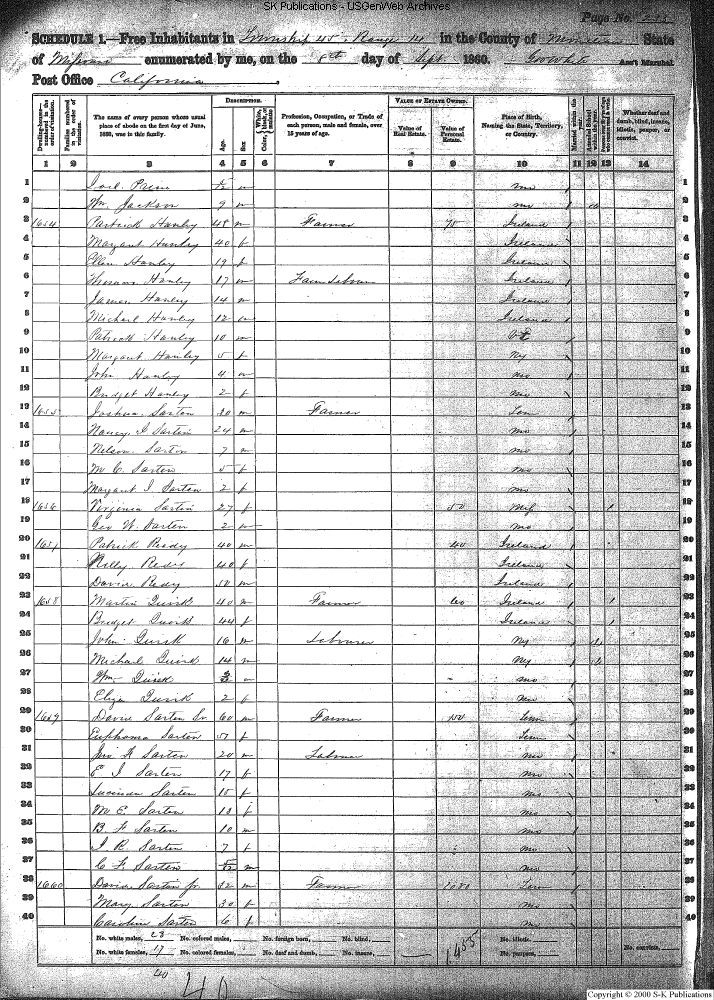 SK Publications - USGenWeb Archives
Page No. 235
SCHEDULE 1.—Free Inhabitants in Township 45, Range 14 in the County of State
of Missouri enumerated by me, on the 8th day of Sept 1860. Geo White Ass't Marshal.
Post Office California
Dwelling-houses— numbered in the order of visitation.
Families numbered in the order of visitation.
The name of every person whose usual place of abode on the first day of June, 1860, was in this family.
DESCRIPTION.
Age.
Sex
Color, White, black, or mulatto.
Profession, Occupation, or Trade of each person, male and female, over 15 years of age.
VALUE OF ESTATE OWNED.
Value of Real Estate.
Value of Personal Estate.
Place of Birth, Naming the State, Territory, or Country.
Married within the year.
Attended School within the year.
Whether deaf and dumb, blind, insane, idiotic, pauper, or convict.
1 2 3 4 5 6 7 8 9 10 11 12 13 14
1 m Mo 1
2 Wm Jackson 9 m Mo 2
3 1654 Partrick Hanley 48 m Farmer 75 Ireland 3
4 Margaret Hanley 40 f Ireland 4
5 Ellen Hanley 19 f Ireland 5
6 Hanley 17 m Farm Laborer Ireland 6
7 James Hanley 14 m Ireland 7
8 Michael Hanley 12 m Ireland 8
9 Patrick Hanley 10 m 9
10 Margaret Hanley 5 f Ny 10
11 John Hanley 4 m Mo 11
12 Bridget Hanley 2 f Mo 12
13 1655 Joshua Sarten 30 m Farmer Tenn 13
14 Nancy J Sarten 24 Mo 14
15 Nelson Sarten 7 m Mo 15
16 M C Sarten 5 f Mo 16
17 Margaret J Sarten 2 f Mo 17
18 1656 Virginia Sarten 27 f 50 18
19 Geo W. Sarten 2 m Mo 19
20 1657 Patrick Ready 40 m 40 Ireland 20
21 Redy 40 f Ireland 21
22 David Redy 50 m Ireland 22
23 1658 Martin Quirk 40 m Farmer 60 Ireland 23
24 Bridget Quirk 44 f Ireland 24
25 John Quirk 16 m Laborer Ny 25
26 Michael Quirk 14 m Ny 26
27 Wm Quirk m Mo 27
28 Eliza Quirk 2 f Mo 28
29 1659 David Sarten Sr 60 m Farmer 150 Tenn 29
30 Euphoma Sarten 51 f Tenn 30
31 Jno Sarten 20 m Laborer Mo 31
32 E J Sarten 17 f Mo 32
33 Sarten 15 f Mo 33
34 M E. Sarten 13 f Mo 34
35 B. F Sarten 10 m Mo 35
36 J. R Sarten 7 f Mo 36
37 C. F. Sarten m Mo 37
38 1660 David Sarten Jr 32 m Farmer 1080 Tenn 38
39 Mary Sarten 30 f Mo 39
40 Caroline Sarten 6 f 40
No. white males, 23 No. colored males, No. foreign born, No. blind, No. idiotic,
No. white females, 17 No. colored females, No. deaf and dumb, No. insane, 1455 No. paupers, No. convicts,
40
40
Copyright © 2000 S-K Publications